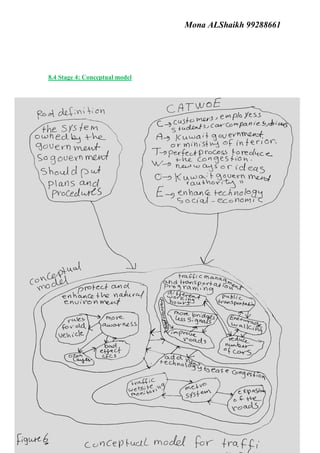 Mona ALShaikh 99288661
8.4 Stage 4: Conceptual model
Root definition
the system
owned by the
government
So government
Should put
plans and
Procedures
CATWOE
C→customers, employess
students, car companies, drivers
A→ Kuwait government
or ministry of interior
T→perfect process to reduce
the congestion.
W→ new ways or ideas
O→ Kuwait government
"authority"
E→ enhance technology
social-economic
conceptual
model
protect and
enhance the natural
environment
rules
for old
vehicle
more
awarness
bad
effect
CFCs
Ozon
layer
traffic managment
and transportation
programing
different
working
hours
public
transportation
more bridges
less signals
improve
roads
walking
reduce
number
of cars
add
technology to ease congestion
traffic
website,
monitoring
metro
system
Expansion
of the
roads
Figure 6
conceptual model for traffi